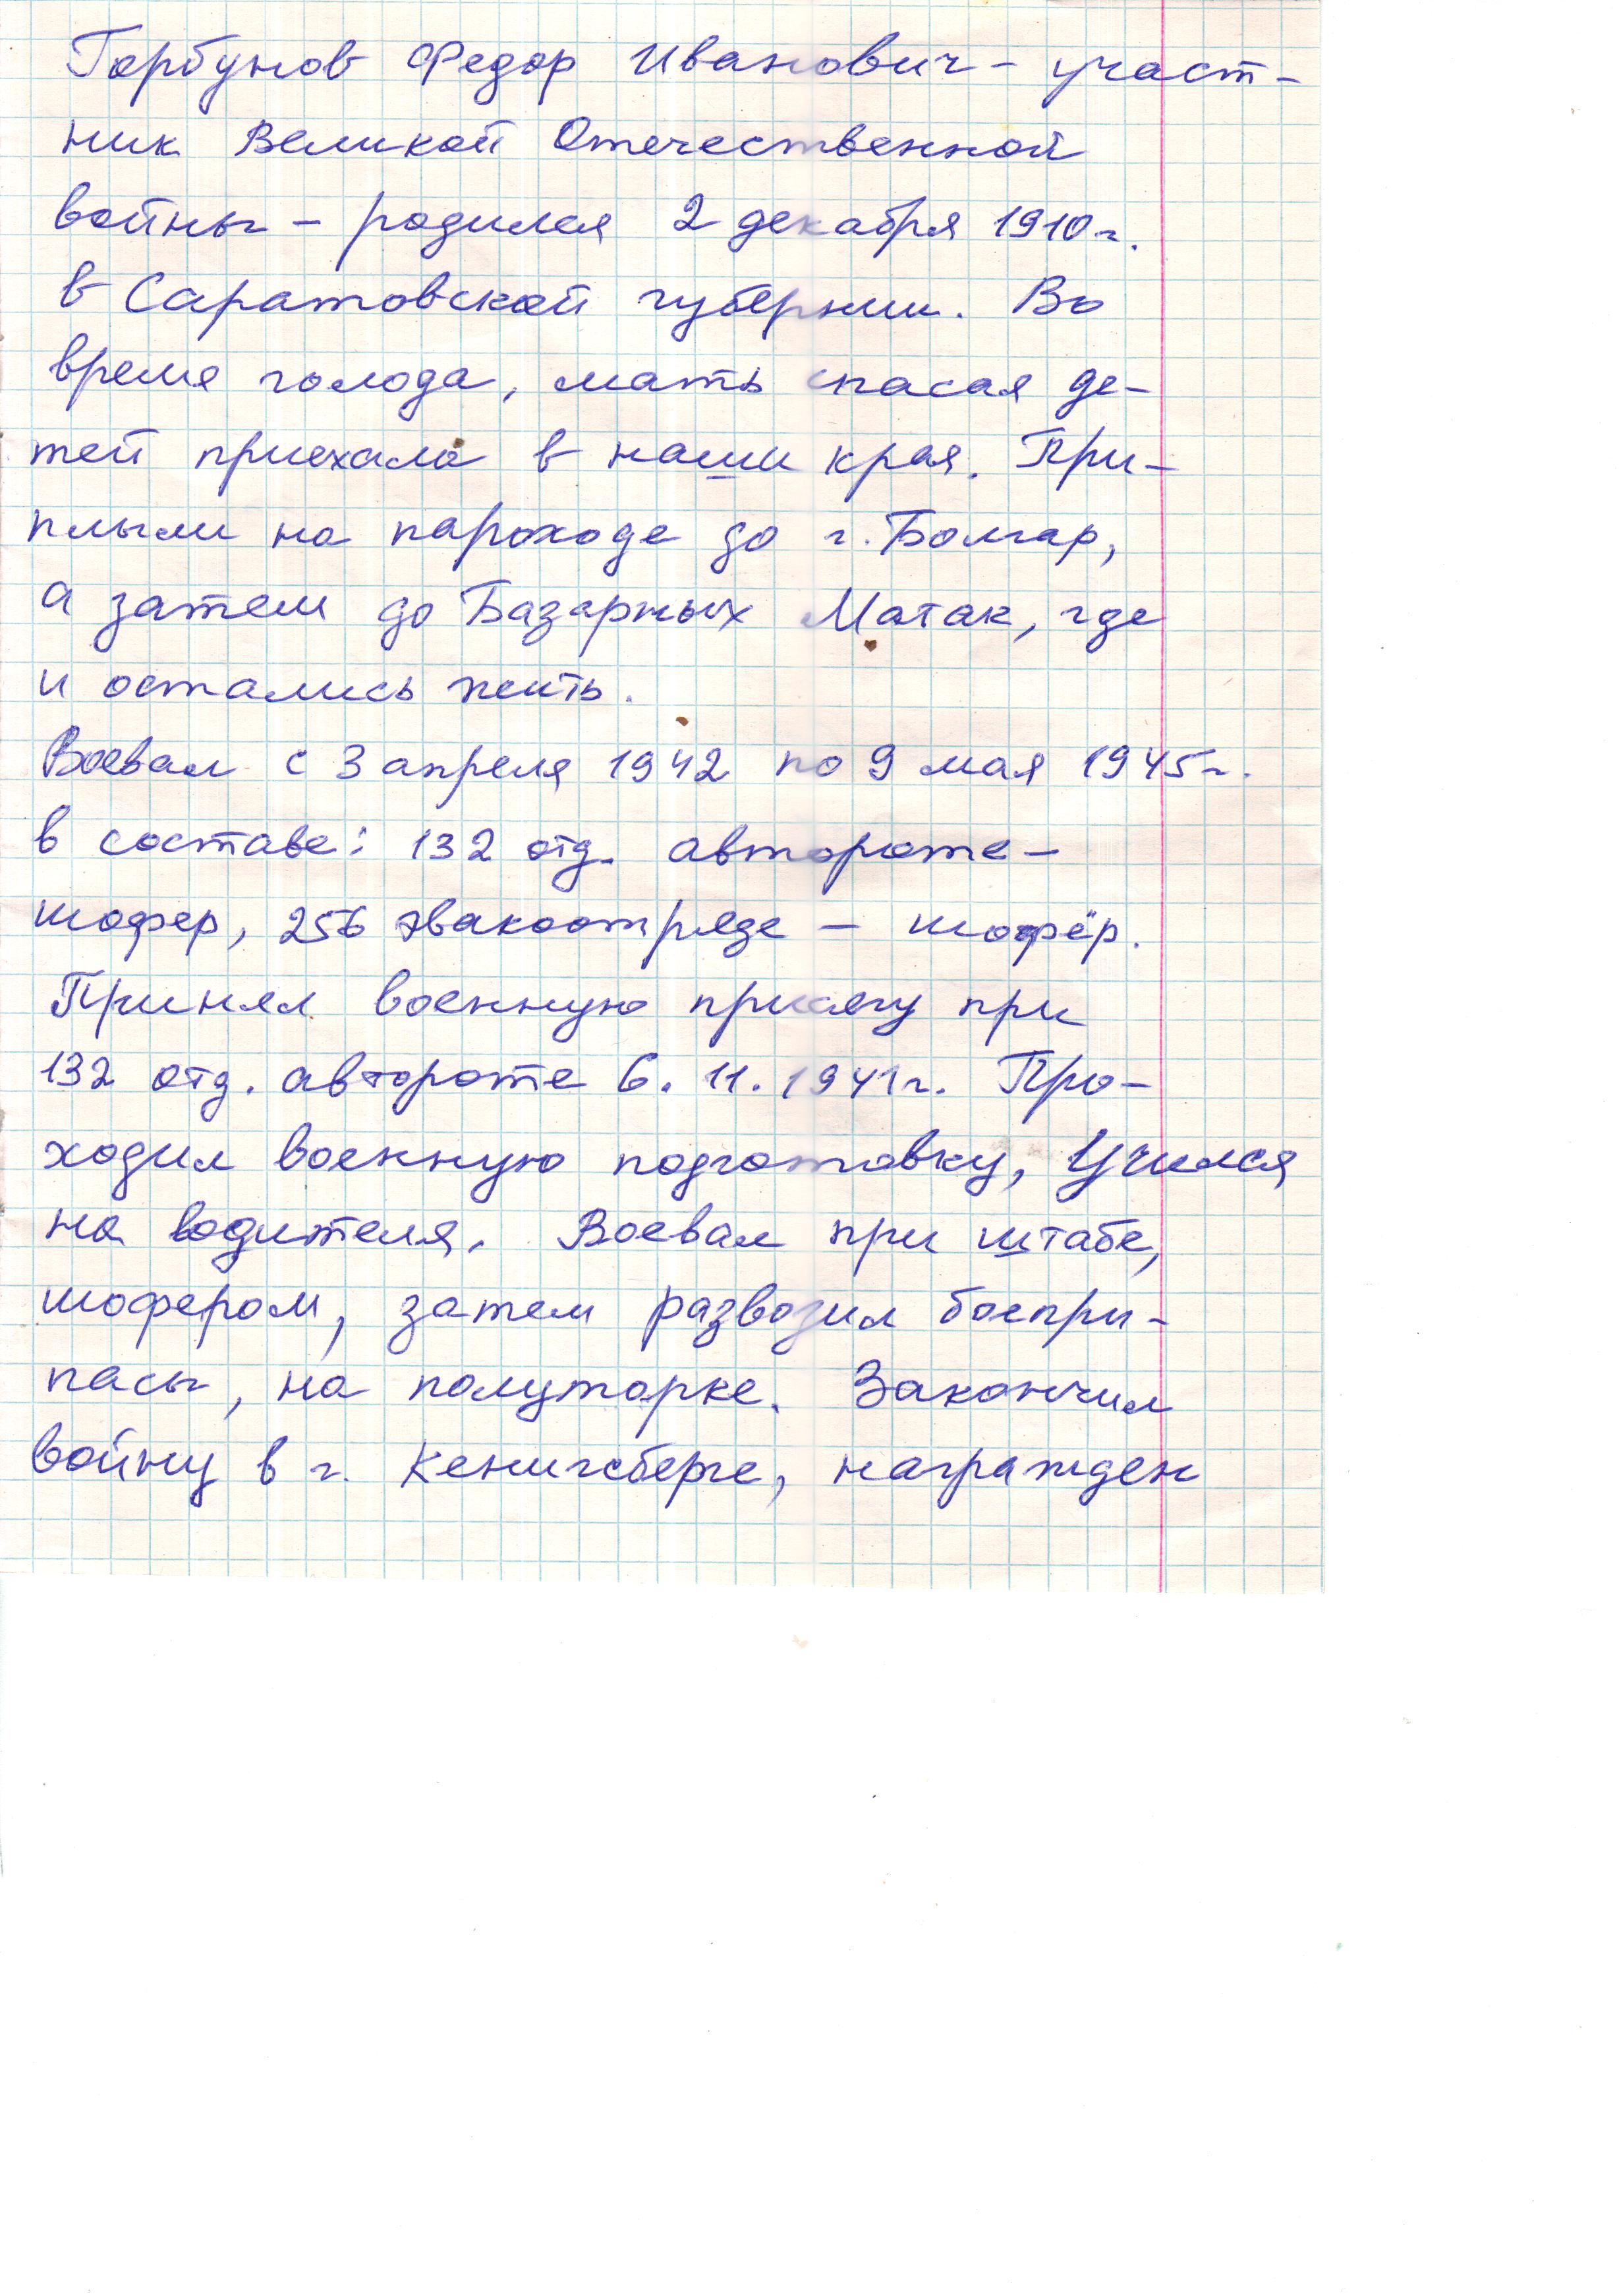 Горбунов Федор Иванович - участ-
ник Великой Отечественной
войны - родился 2 декабря 1910г.
в Саратовской губернии. Во
время голода, мать спасая де-
тей приехала в наши края. При-
плыли на пароходе до г. Болгар,
а затем до Базарных Матак, где
и остались жить.
Воевал с 3 апреля 1942 по 9 мая 1945г.
в составе: 132 отд. автороте -
шофер, 256 эвакоотряде - шофёр.
Принял военную присягу при
132 отд. автороте 6.11.1941г. Про-
ходил военную подготовку, Учился
на водителя. Воевал при штабе,
шофером, затем развозил боепри-
пасы, на полуторке. Закончил
войну в г. Кенигсберге, награжден